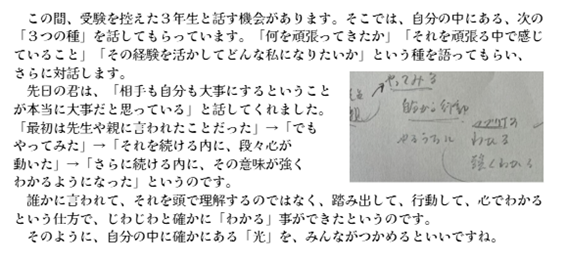 この間、受験を控えた３年生と話す機会があります。そこでは、自分の中にある、次の
「３つの種」を話してもらっています。「何を頑張ってきたか」「それを頑張る中で感じ
ていること」「その経験を活かしてどんな私になりたいか」という種を語ってもらい、
さらに対話します。
先日の君は、「相手も自分も大事にするということ
が本当に大事だと思っている」と話してくれました。
「最初は先生や親に言われたことだった」→「でも
やってみた」→「それを続ける内に、段々心が
動いた」→「さらに続ける内に、その意味が強く
わかるようになった」というのです。
やってみる
自分から行動
やるうちに
わかる
強くわかる
誰かに言われて、それを頭で理解するのではなく、踏み出して、行動して、心でわかる
という仕方で、じわじわと確かに「わかる」事ができたというのです。
そのように、自分の中に確かにある「光」を、みんながつかめるといいですね。